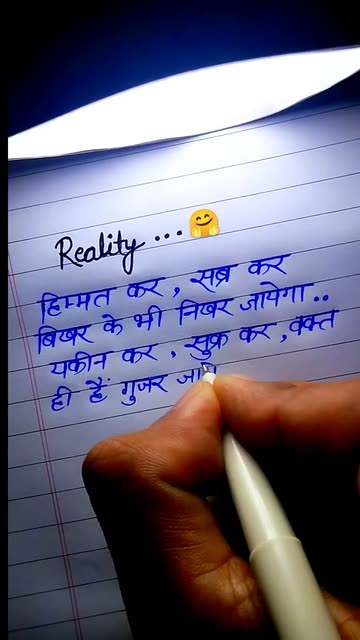 Reality ... 🤗
हिम्मत कर , सब्र कर
बिखर के भी निखर जायेगा ..
यकीन कर , सुक्र कर , वक्त
ही हैं गुजर